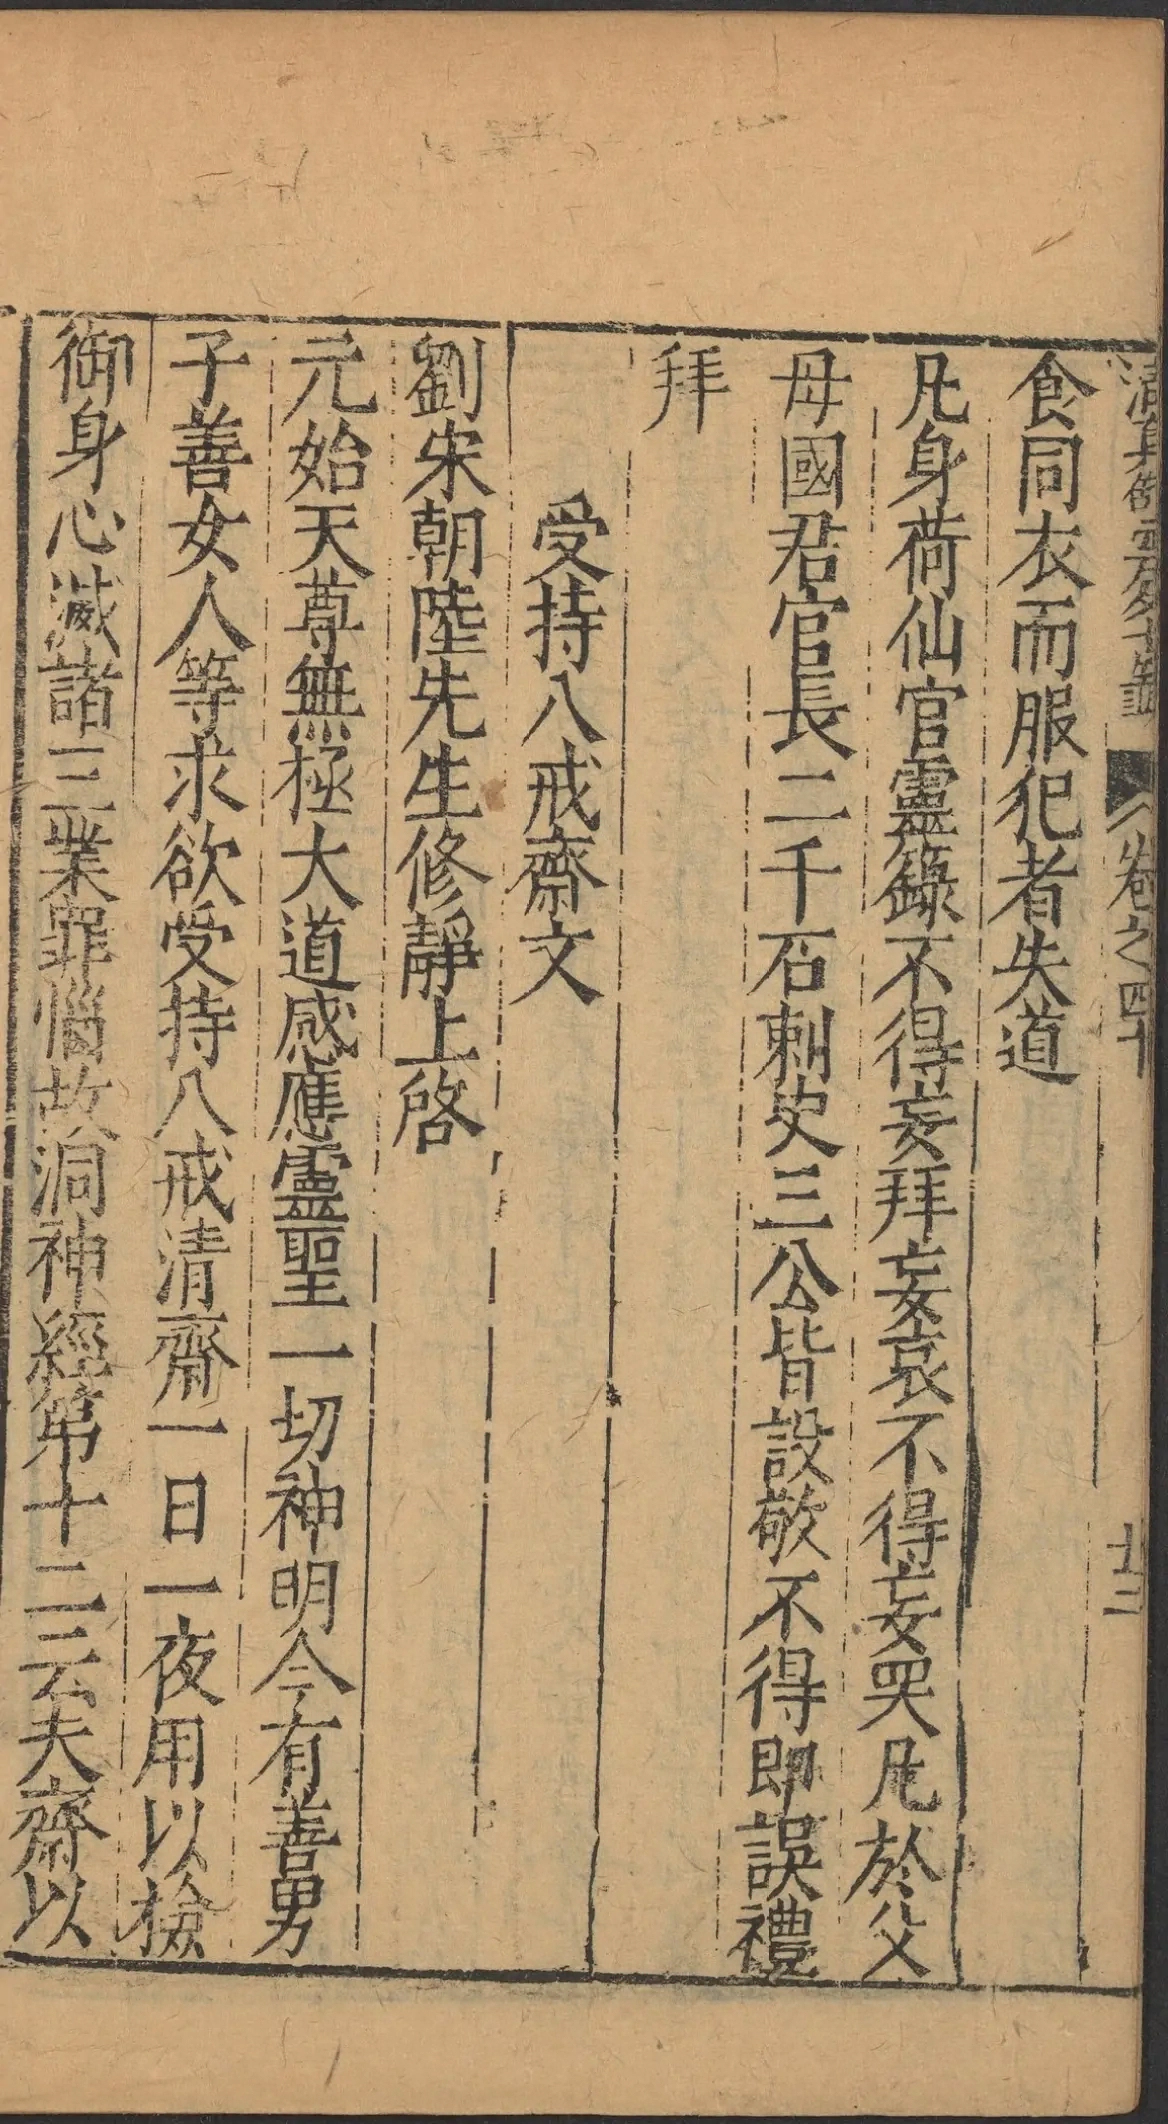 清真雲笈七籤 卷之四十 廿二
食同衣而服犯者失道
凡身荷仙官靈錄不得妄拜妄哀不得妄哭凡於父
母國君官長二千石刺史三公皆設敬不得即誤禮
拜
受持八戒齋文
劉宋朝陸先生修靜上啓
元始天尊無極大道感應靈聖一切神明今有善男
子善女人等求欲受持八戒清齋一日一夜用以檢
御身心滅諸三業罪惱故洞神經第十二云夫齋以